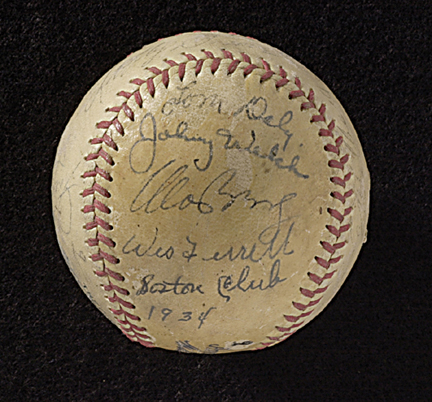 Tom Daly
Johnny Welch
Moe Berg
Wes Ferrell
Boston Club
1934